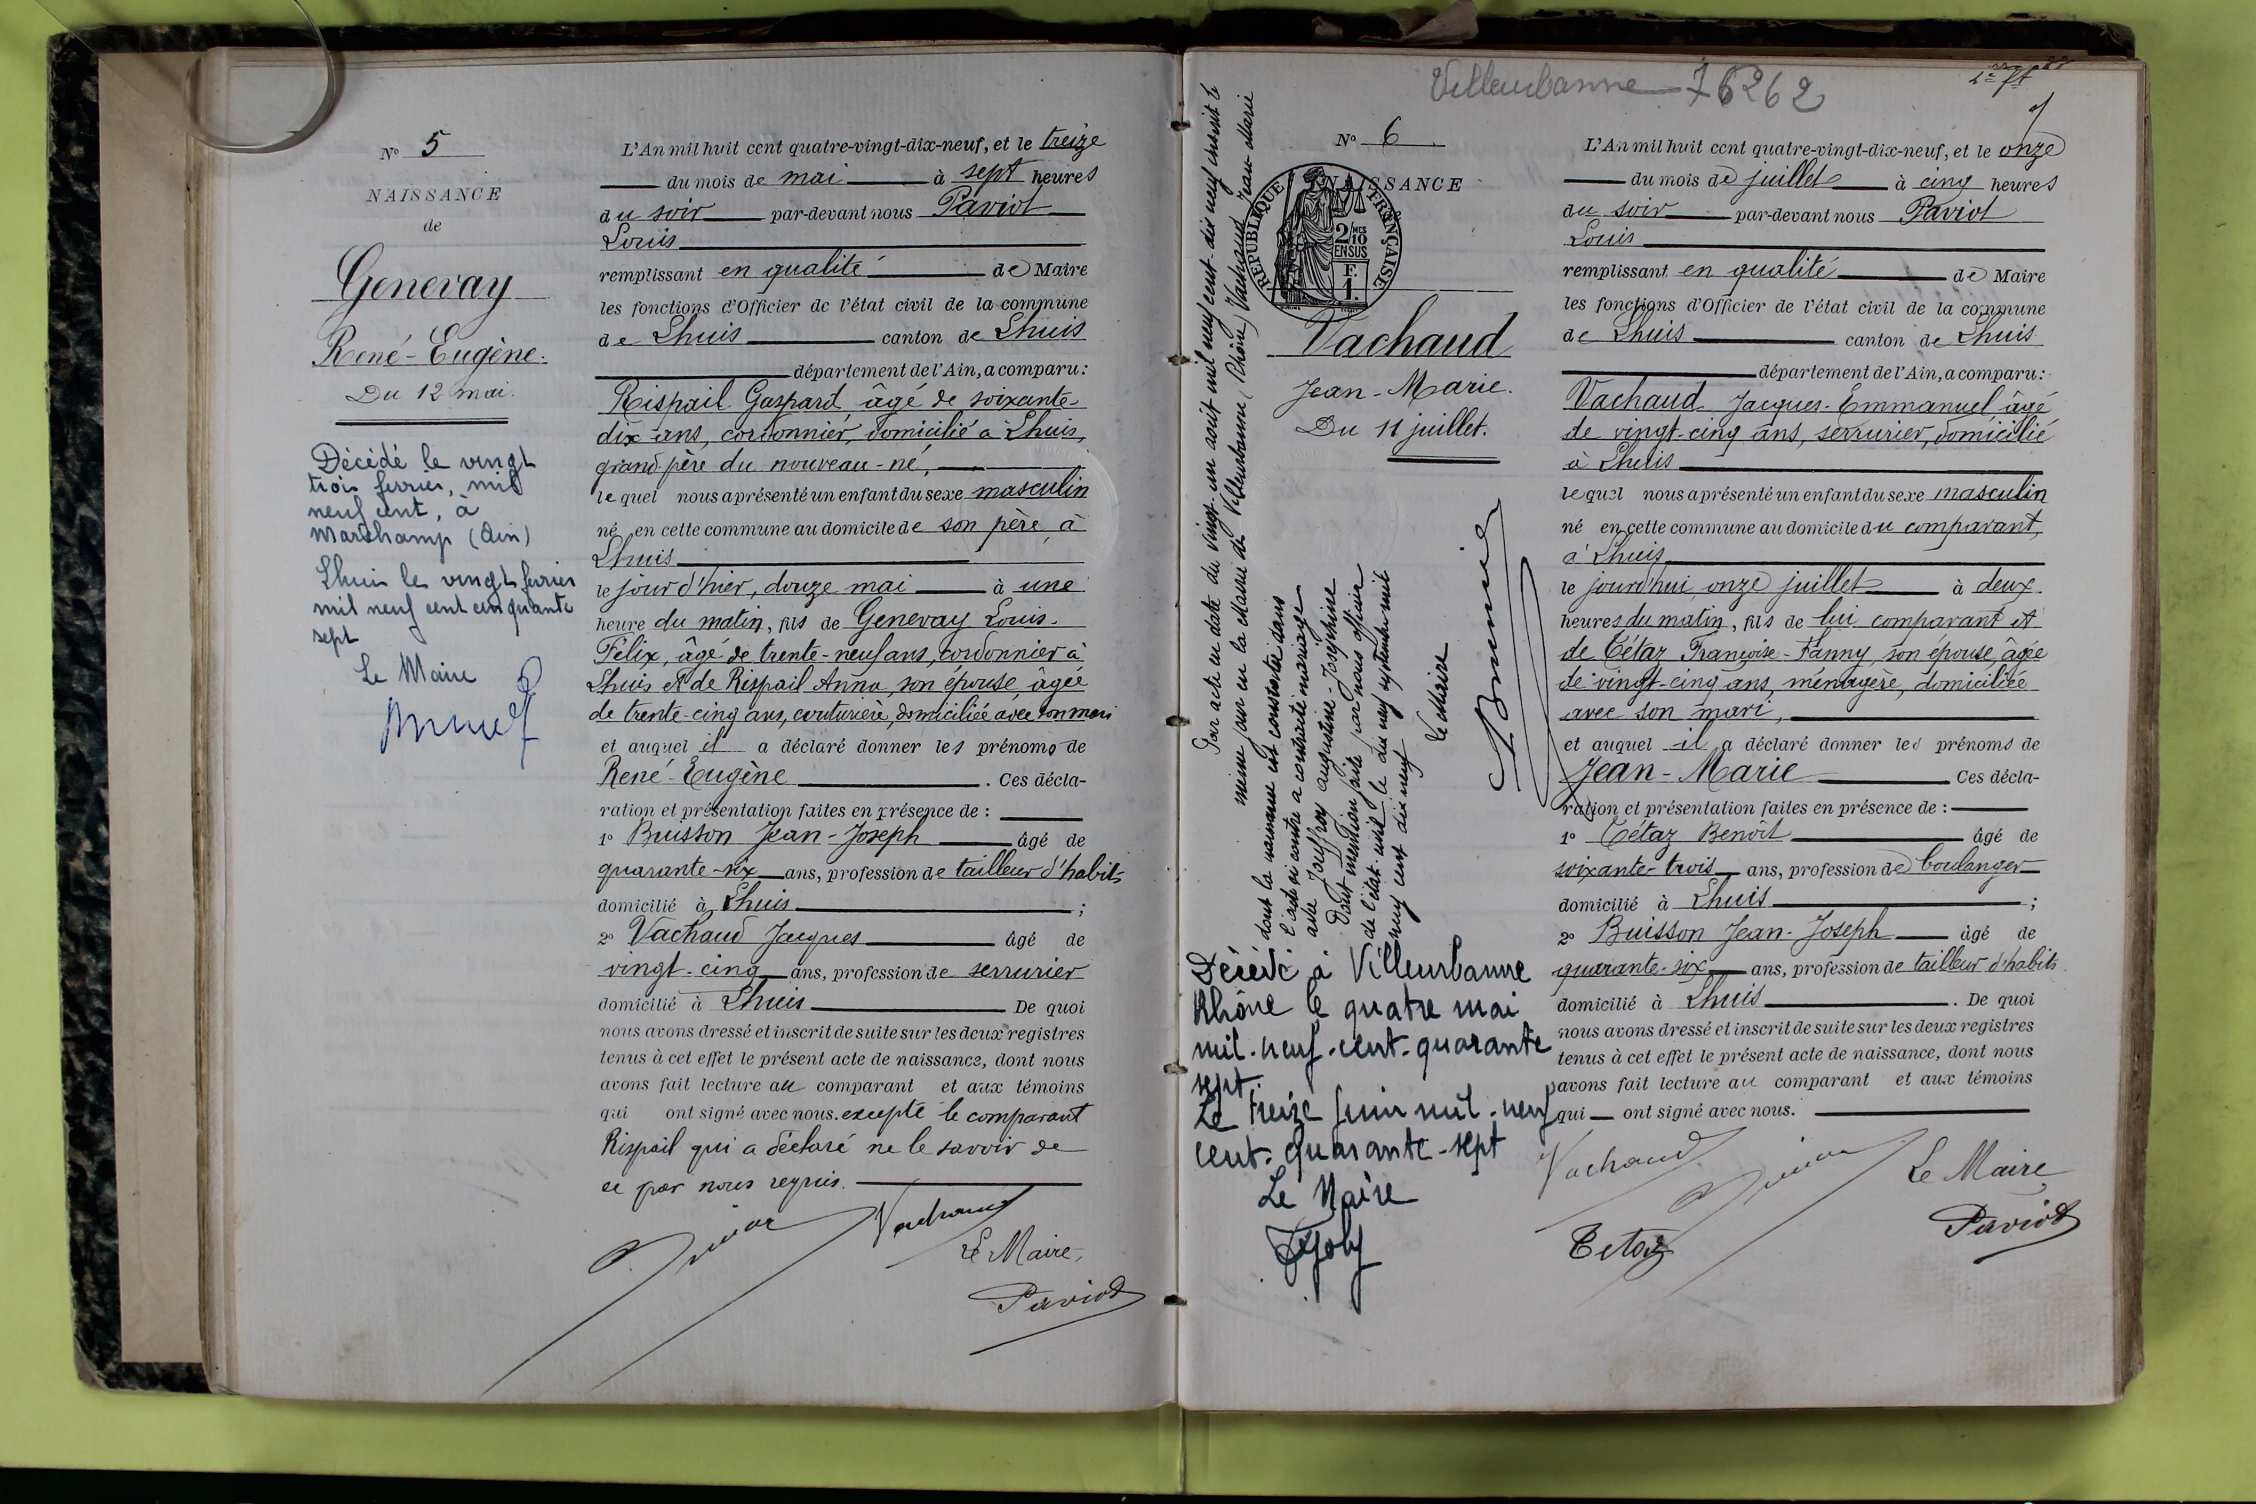 N° 5
NAISSANCE
de
Genevay
René-Eugène.
Du 12 mai.
Décédé le vingt
trois fevrier, mil
neuf cent, à
Marchamp (Ain)
Lhuis le vingt fevrier
mil neuf cent cinquante
sept
Le Maire
L'An mil huit cent quatre-vingt-dix-neuf, et le treize
du mois de mai à sept heures
du soir par-devant nous Paviot
Louis
remplissant en qualité de Maire
les fonctions d'Officier de l'état civil de la commune
de Lhuis canton de Lhuis
département de l'Ain, a comparu:
Rispail Gaspard, âgé de soixante-
dix ans, cordonnier, domicilié à Lhuis,
grand-père du nouveau-né,
lequel nous a présenté un enfant du sexe masculin
né en cette commune au domicile de son père, à
Lhuis
le jour d'hier, douze mai à une
heure du matin, fils de Genevay Louis-
Félix, âgé de trente-neuf ans, cordonnier à
Lhuis et de Rispail Anna, son épouse, âgée
de trente-cinq ans, couturière, domiciliée avec son mari
et auquel il a déclaré donner les prénoms de
René-Eugène. Ces décla-
ration et présentation faites en présence de :
1° Buisson Jean-Joseph âgé de
quarante-six ans, profession de tailleur d'habits
domicilié à Lhuis ;
2° Vachaud Jacques âgé de
vingt-cinq ans, profession de serrurier
domicilié à Lhuis De quoi
nous avons dressé et inscrit de suite sur les deux registres
tenus à cet effet le présent acte de naissance, dont nous
avons fait lecture au comparant et aux témoins
qui ont signé avec nous. excepté le comparant
Rispail qui a déclaré ne le savoir de
ce par nous requis.
Vachaud
Le Maire,
Paviot
Villeurbanne 76262
N° 6
NAISSANCE
RÉPUBLIQUE FRANÇAISE
2/10 MES
EN SUS
F.
1.
Vachaud
Jean-Marie.
Du 11 juillet.
Par acte en date du vingt-un août mil neuf cent dix neuf transcrit le
même jour en la Mairie de Villeurbanne (Rhône) Vachaud Jean Marie
dont la naissance est constatée dans
l'acte ci contre a contracté mariage
avec Jouffroy augustine-Joséphine
Dont mention faite par nous officier
de l'état-civil le dix neuf septembre mil
neuf cent dix neuf
Le Maire
Décédé à Villeurbanne
Rhône le quatre mai
mil-neuf-cent-quarante
sept.
Le treize Juin mil-neuf
cent-quarante-sept
Le Maire
L'An mil huit cent quatre-vingt-dix-neuf, et le onze
du mois de juillet à cinq heures
du soir par-devant nous Paviot
Louis
remplissant en qualité de Maire
les fonctions d'Officier de l'état civil de la commune
de Lhuis canton de Lhuis
département de l'Ain, a comparu:
Vachaud Jacques-Emmanuel âgé
de vingt-cinq ans, serrurier, domicilié
à Lhuis
lequel nous a présenté un enfant du sexe masculin
né en cette commune au domicile du comparant,
à Lhuis
le jourd'hui onze juillet à deux
heures du matin, fils de lui comparant et
de Tétaz Françoise-Fanny, son épouse, âgée
de vingt-cinq ans, ménagère, domiciliée
avec son mari,
et auquel il a déclaré donner les prénoms de
Jean-Marie Ces décla-
ration et présentation faites en présence de :
1° Tétaz Benoît âgé de
soixante-trois ans, profession de boulanger
domicilié à Lhuis ;
2° Buisson Jean-Joseph âgé de
quarante-six ans, profession de tailleur d'habits
domicilié à Lhuis. De quoi
nous avons dressé et inscrit de suite sur les deux registres
tenus à cet effet le présent acte de naissance, dont nous
avons fait lecture au comparant et aux témoins
qui ont signé avec nous.
Vachaud
Le Maire
Tetaz
Paviot